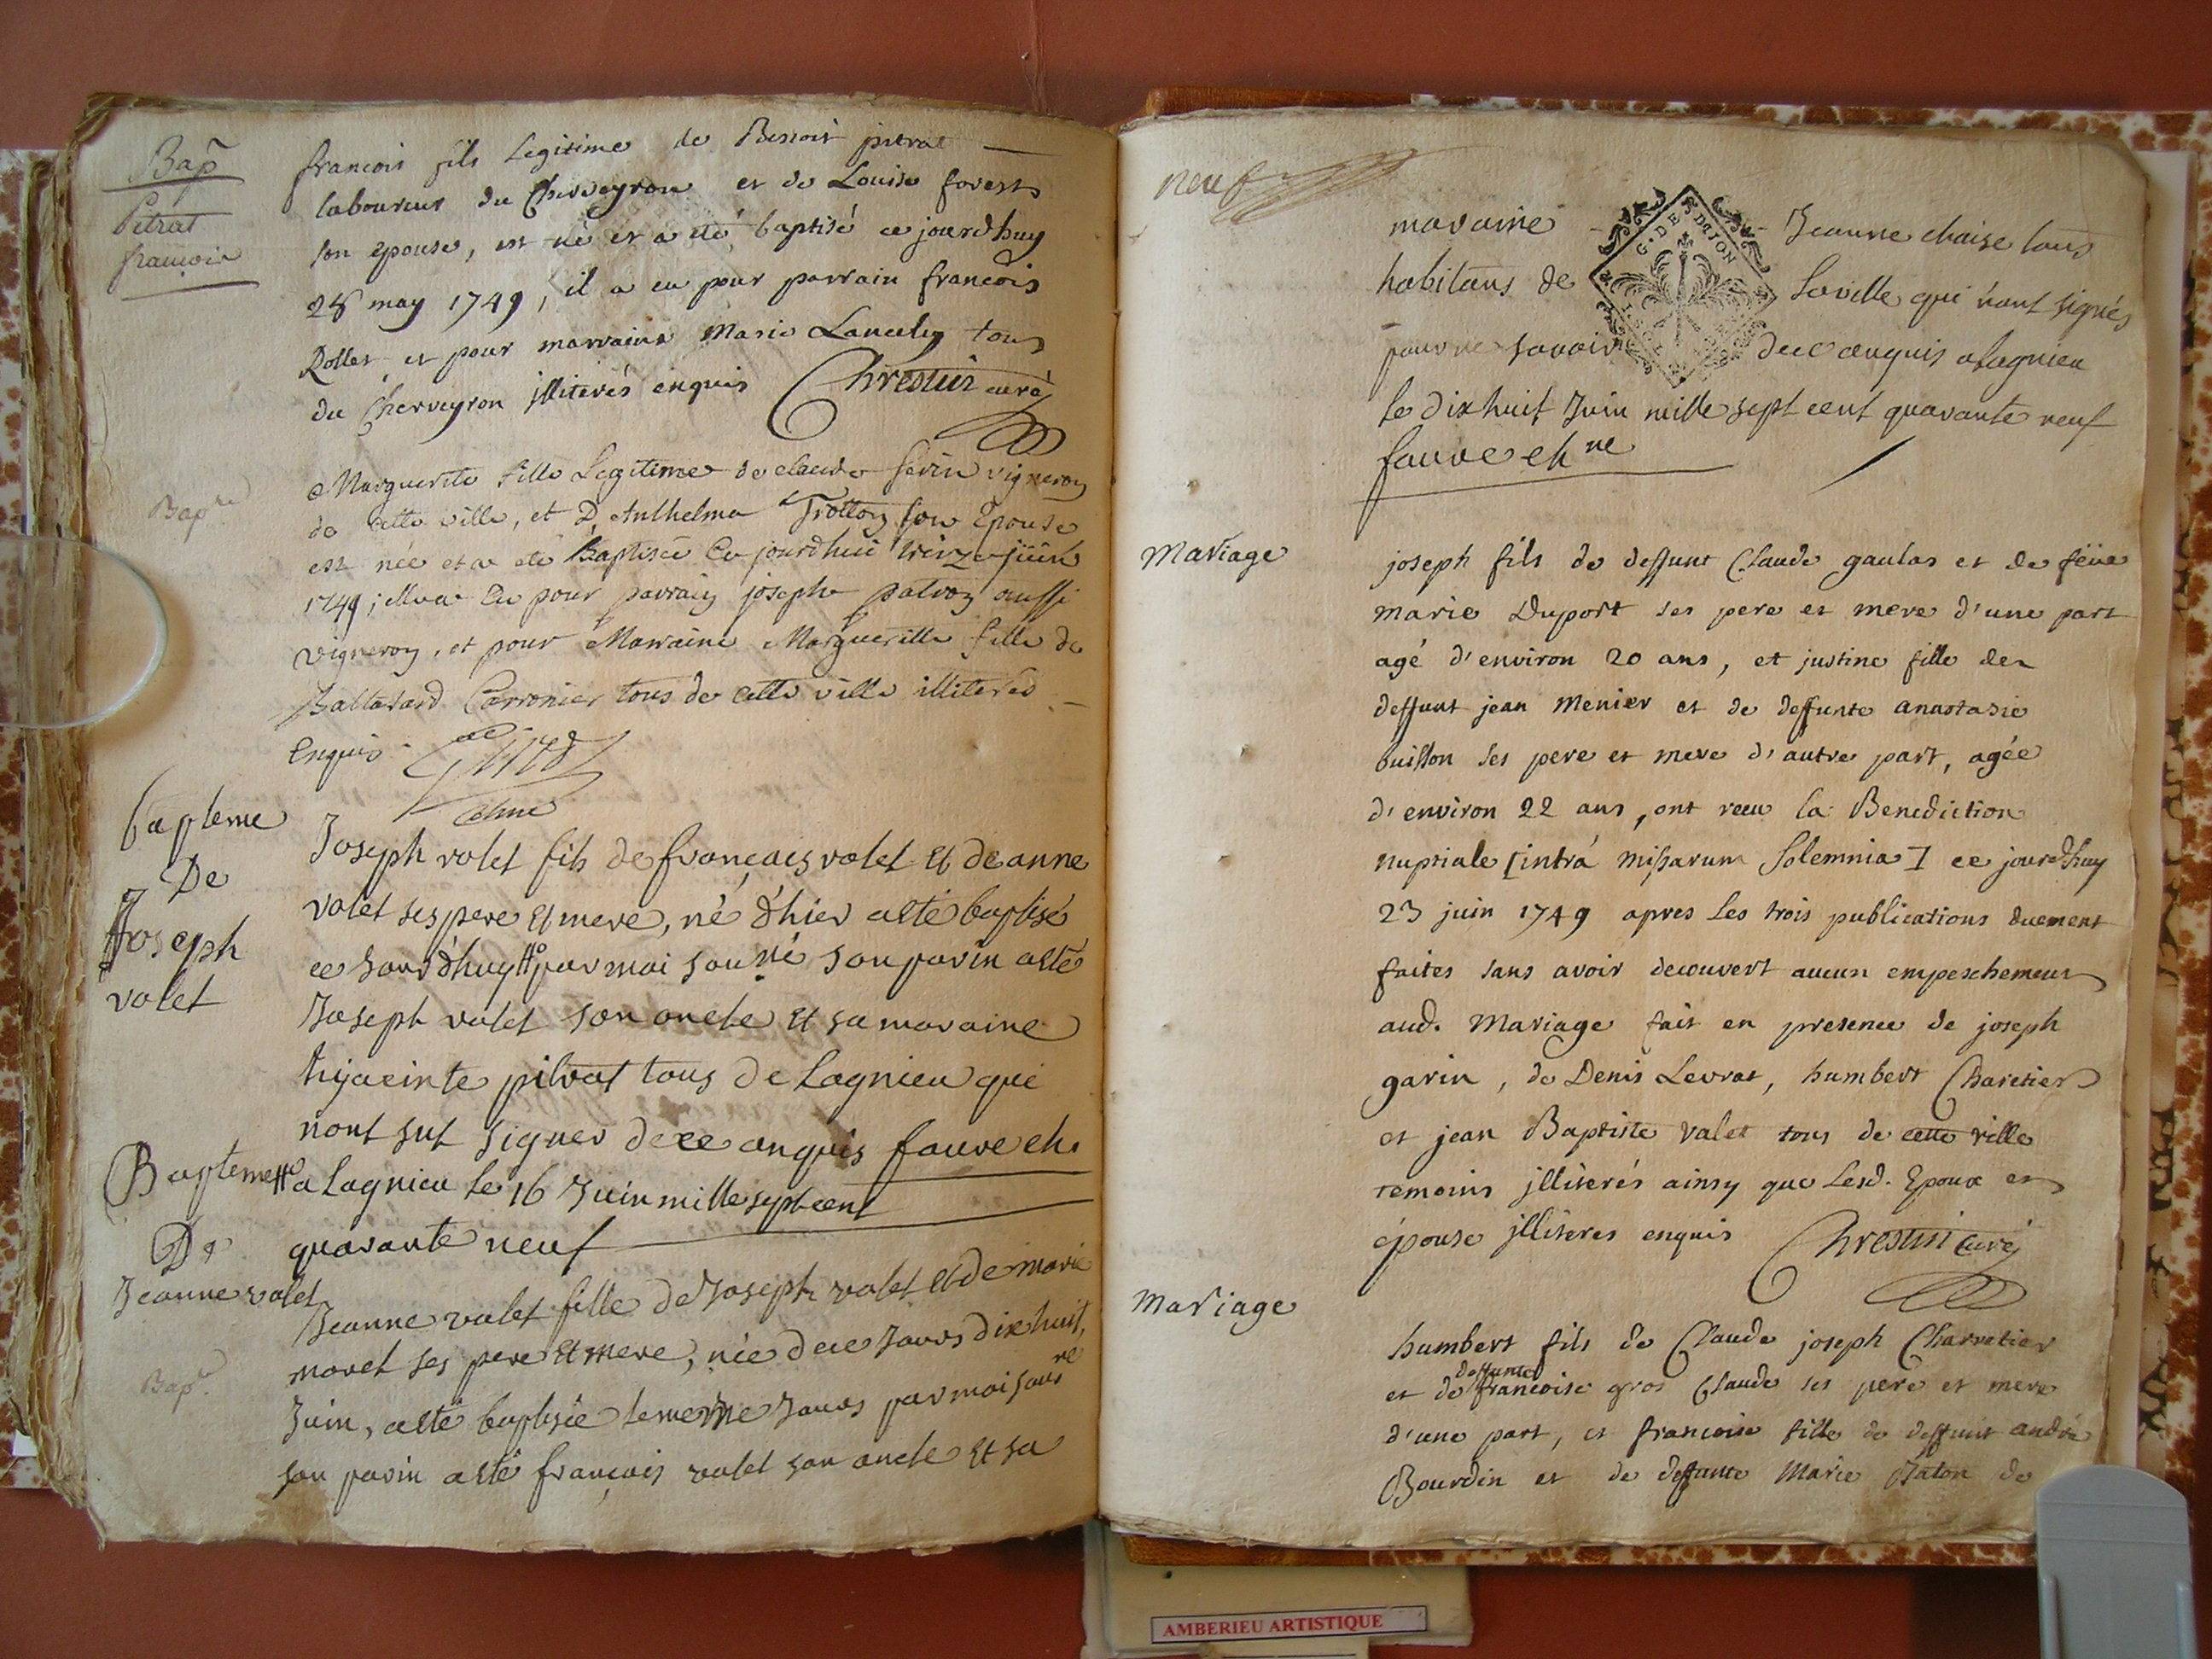 Bap
Pitrat
francois
francois fils Legitime de Benoit pitrat
laboureur du Cherveyron et de Louise forest
son epouse, est né et a eté baptisé ce jourdhuy
28 may 1749, il a eu pour parrain francois
Rollet et pour marraine Marie Lancelin tous
du Cherveyron jlliterés enquis Chrestin curé
Bap
Marguerite fille Legitime de claude Savin vigneron
de cette ville, et D. Anthelma Trotton son Epouse
est née et a eté Baptisée Ce jourdhui treize juin
1749; elle a Eu pour parrain joseph patroz aussi
vigneron, et pour Marraine Margueritte fille de
Baltazard Carronier tous de cette ville illiterés
Enquis
bapteme
De
Joseph
valet
Joseph valet fils de francois valet Et de anne
valet ses pere Et mere, né d'hier asté baptisé
ce Jours d'huy # par moi sou né son parin asté
Joseph valet son oncle Et sa maraine
hijacinte pitrat tous de Lagnieu qui
nont sut signer de ce anquis fauve ch.
# a Lagnieu le 16 Juin mille sept cent
quarante neuf
Bapteme
De
Jeanne valet
Jeanne valet fille de Joseph valet Et de marie
moret ses pere Et mere, née de ce Jours dix huit
Juin, asté baptisée le meme Jours par moi sous né
son parin asté francois valet son oncle Et sa
Bap.
neuf
maraine - G. DE DIJON - Jeanne chaise tous
habitans de Laville qui n'ont signés
pour ne savoir de ce anquis a Lagnieu
le dix huit Juin mille sept cent quarante neuf
fauve ch ne
Mariage
joseph fils de deffunt Claude gaulas et de feüe
marie Duport ses pere et mere d'une part
agé d'environ 20 ans, et justine fille de
deffunt jean Menier et de deffunte anastasie
buisson ses pere et mere d'autre part, agée
d'environ 22 ans, ont recu la Benediction
nuptiale [intrá missarum solemnia] ce jourdhuy
23 juin 1749 apres les trois publications duement
faites sans avoir decouvert aucun empeschement
aud. Mariage fait en presence de joseph
garin, de Denis Levrat, humbert Charetier
et jean Baptiste valet tous de cette ville
temoins jlliterés ainsy que Lesd. Epoux et
épouse jlliteres enquis Chrestin Curé
Mariage
humbert fils de Claude joseph Charretier
et de deffunte francoise gros Claude ses pere et mere
d'une part, et francoise fille de deffunt andré
Bourdin et de deffunte Marie Jaton de
AMBERIEU ARTISTIQUE